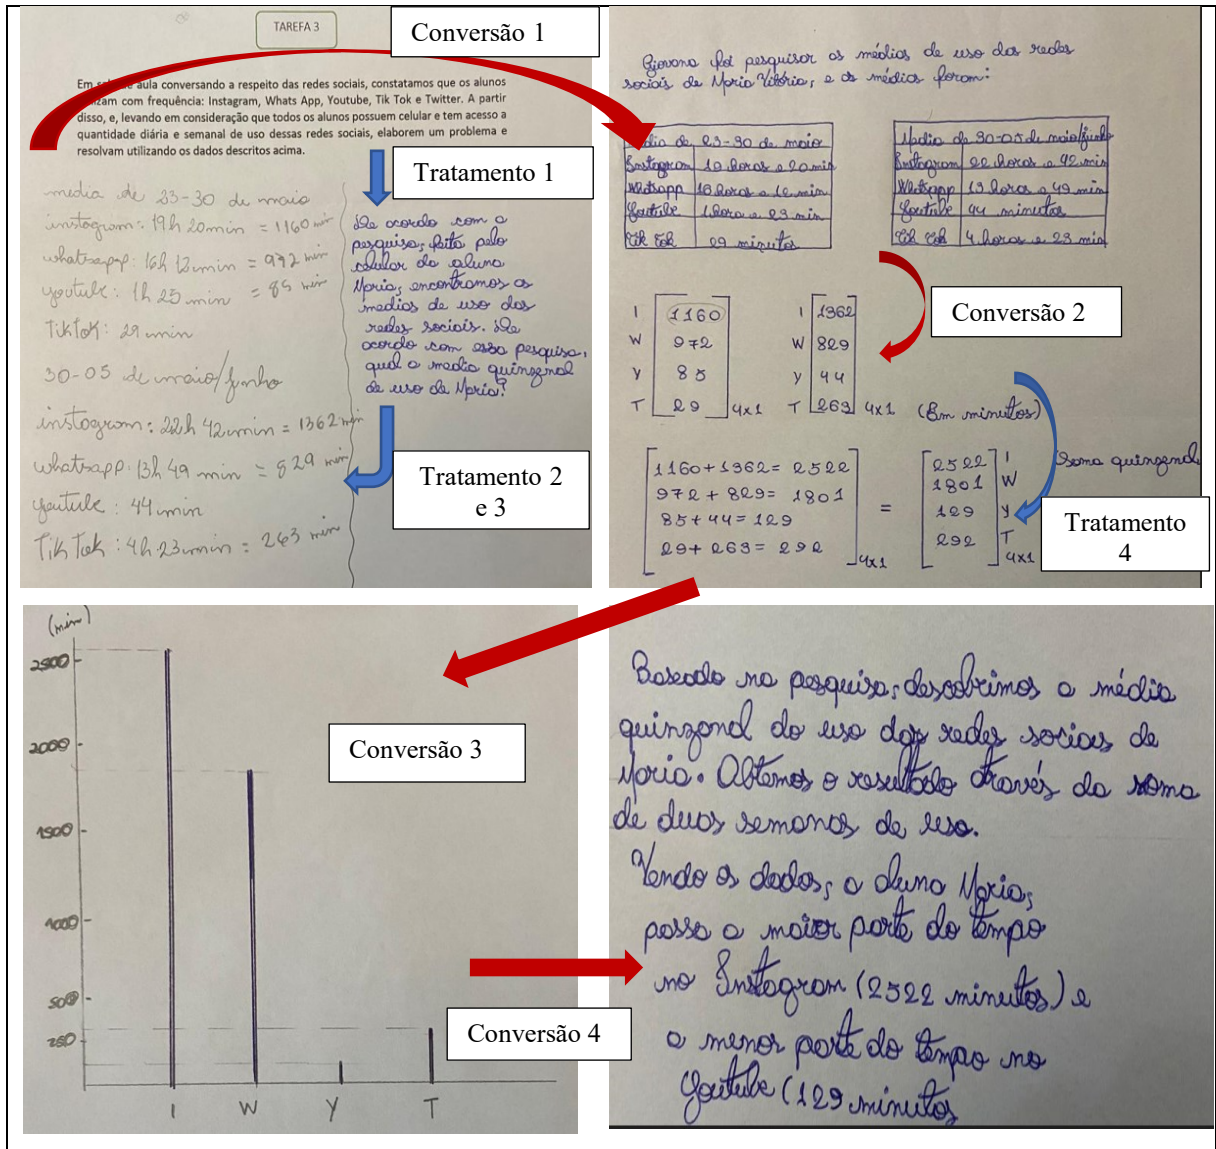 TAREFA 3
Conversão 1
Em sala de aula conversando a respeito das redes sociais, constatamos que os alunos
utilizam com frequência: Instagram, Whats App, Youtube, Tik Tok e Twitter. A partir
disso, e, levando em consideração que todos os alunos possuem celular e tem acesso a
quantidade diária e semanal de uso dessas redes sociais, elaborem um problema e
resolvam utilizando os dados descritos acima.
Tratamento 1
media de 23-30 de maio
instagram: 19h 20min = 1160 min
whatsapp: 16h 12min = 972 min
youtube: 1h 25 min = 85 min
TikTok: 29 min
30-05 de maio/junho
instagram: 22h 42min = 1362 min
whatsapp: 13h 49 min = 829 min
youtube: 44 min
Tik Tok: 4h 23min = 263 min
De acordo com a
pesquisa, feita pelo
celular da aluna
Maria, encontramos as
medias de uso das
redes sociais. De
acordo com essa pesquisa,
qual a media quinzenal
de uso de Maria?
Tratamento 2
e 3
Giovana foi pesquisar as médias de uso das redes
sociais de Maria Vitória, e as médias foram:
Média de 23-30 de maio
Instagram 19 horas e 20 min
Whatsapp 16 horas e 12 min
Youtube 1 hora e 23 min
Tik Tok 29 minutos
Media de 30-05 de maio/junho
Instagram 22 horas e 42 min
Whatsapp 13 horas e 49 min
Youtube 44 minutos
Tik Tok 4 horas e 23 min
Conversão 2
I 1160 I 1362
W 972 W 829
Y 85 Y 44
T 29 4x1 T 263 4x1 (Em minutos)
1160+1362= 2522 2522 I Soma quinzenal
972 + 829= 1801 1801 W
85+44=129 = 129 Y
29+263= 292 4x1 292 T 4x1
Tratamento
4
(min)
2500
2000
1500
1000
500
250
I W Y T
Conversão 3
Conversão 4
Baseado na pesquisa, descobrimos a média
quinzenal do uso das redes sociais de
Maria. Obtemos o resultado através da soma
de duas semanas de uso.
Vendo os dados, a aluna Maria,
passa a maior parte do tempo
no Instagram (2522 minutos) e
a menor parte do tempo no
Youtube (129 minutos